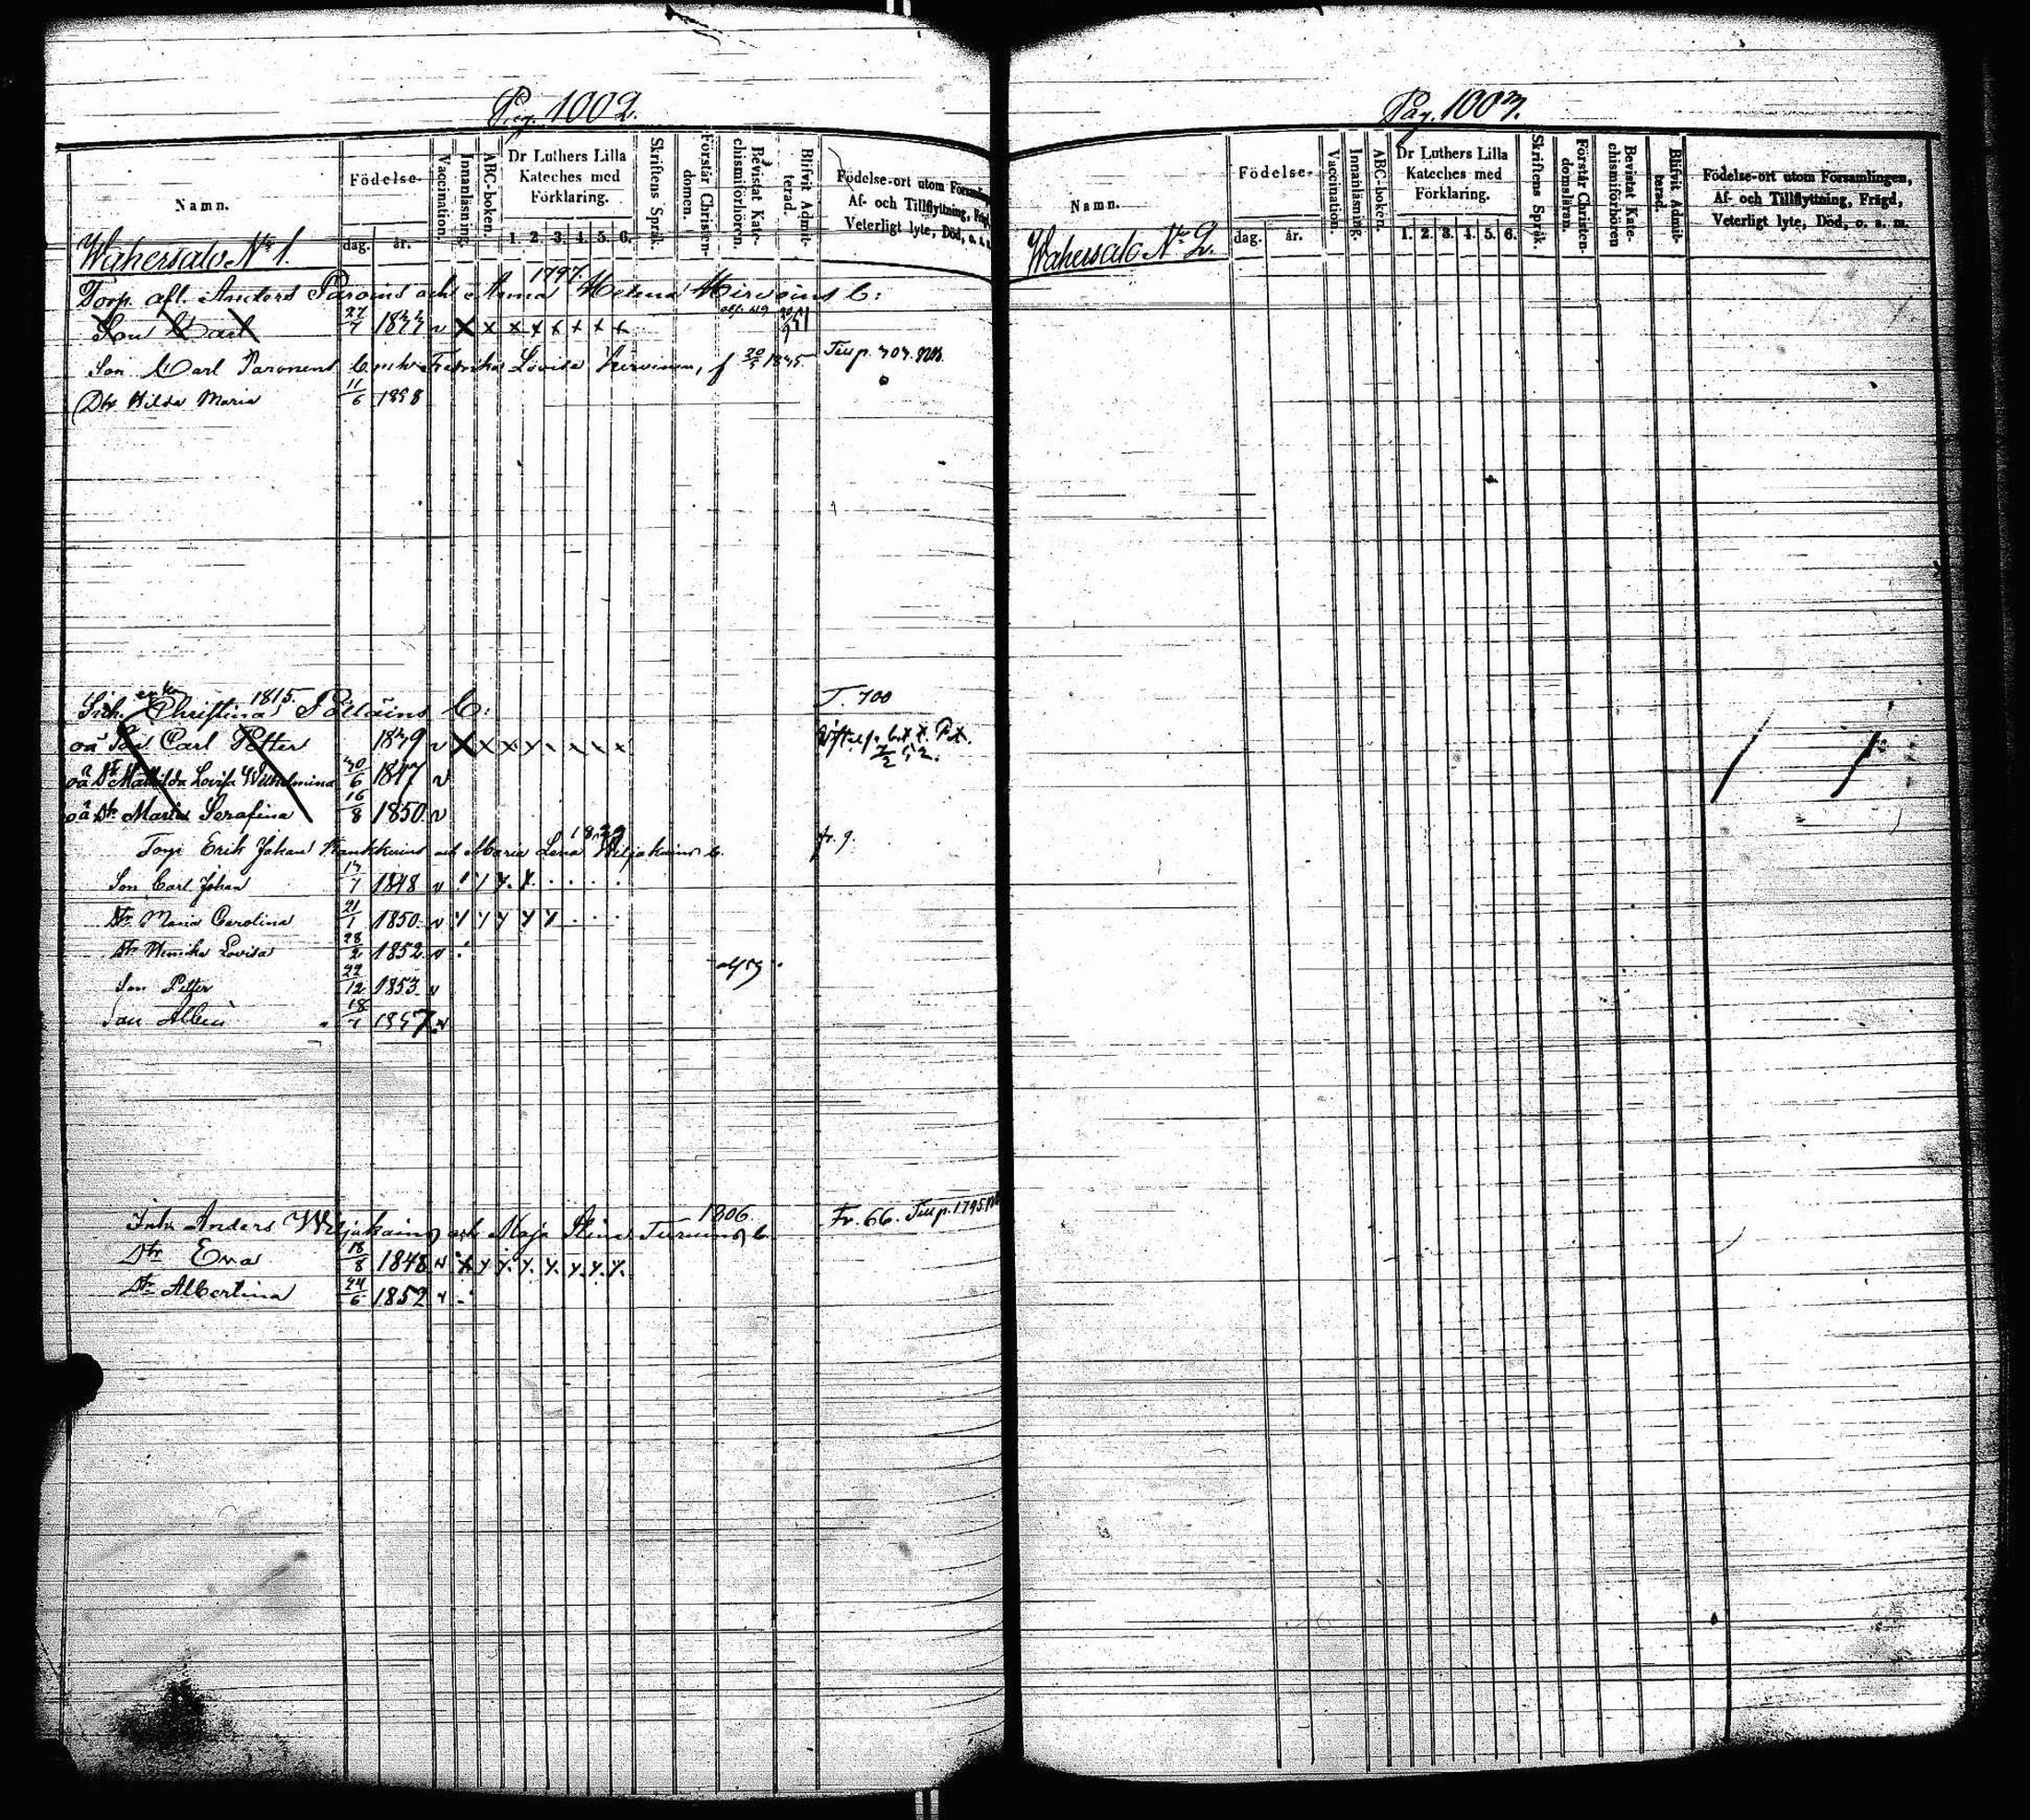 Pag. 1002.
Namn.
Födelse-
dag.
år.
Vaccination.
Innanläsning.
ABC-boken.
Dr Luthers Lilla
Kateches med
Förklaring.
1. 2. 3. 4. 5. 6.
Skriftens Språk.
Förstår Christen-
domen.
Bevistat Kate-
chismiförhören.
Blifvit Admit-
terad.
Födelse-ort utom Församling
Af- och Tillflyttning, Frägd
Veterligt lyte, Död, o. s. m.
Wahersalo No 1.
1797.
Torp. afl. Anders Paroins och Anna Helena Hirvoins b:
Son Carl 27/7 1833 v x x x x x x x x
Son Carl Paronen b. m. h. Fredrika Lovisa Hirvonen, f 20/5 1835
Dtr Hilda Maria 11/6 1858
1815.
Christina Pöllöins b: T. 700
oä Son Carl Petter 1839 v x x x x x x x x
oä Dtr Mathilda Lovisa Wilhelmina 30/6 1847 v
oä Dtr Maria Serafina 16/8 1850. v
1829
Torp Erik Johan och Maria Lena Wiljakains b. fr. 9.
Son Carl Johan 1848 v
Dtr Maria Carolina 21/1 1850. v
Dtr Henrika Lovisa 28/2 1852 v
Son Petter 22/12 1853 v
Son Albin 18/7 1857 v
1806
Inh. Anders Wiljakains och Maja Stina Turuins b. Fr. 66.
Dtr Eva 18/8 1848 v
Dtr Albertina 24/6 1852 v
Pag. 1003.
Namn.
Födelse-
dag.
år.
Vaccination.
Innanläsning.
ABC-boken.
Dr Luthers Lilla
Kateches med
Förklaring.
1. 2. 3. 4. 5. 6.
Skriftens Språk.
Förstår Christen-
domsläran.
Bevistat Kate-
chismiförhören
Blifvit Admit-
terad.
Födelse-ort utom Församlingen,
Af- och Tillflyttning, Frägd,
Veterligt lyte, Död, o. s. m.
Wahersalo No 2.